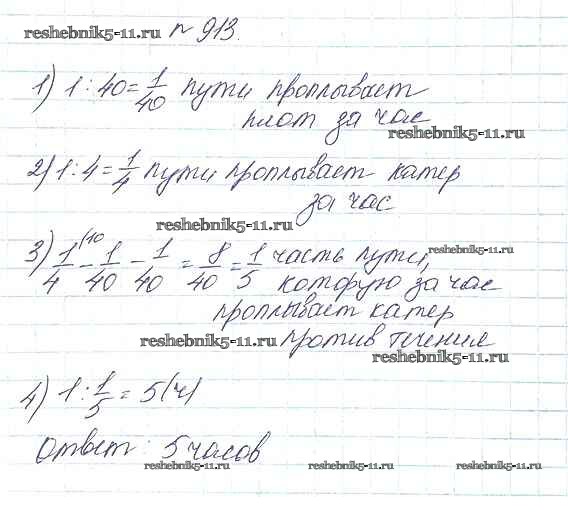 reshebnik5-11.ru № 913.
1) 1 : 40 = 1/40 пути проплывает
плот за час
reshebnik5-11.ru
2) 1 : 4 = 1/4 пути проплывает катер
за час
reshebnik5-11.ru
3) 1/4 (10 - 1/40 - 1/40 = 8/40 = 1/5 часть пути, reshebnik5-11.ru
которую за час
проплывает катер
reshebnik5-11.ru против течения
reshebnik5-11.ru
4) 1 : 1/5 = 5 (ч)
Ответ: 5 часов
reshebnik5-11.ru reshebnik5-11.ru reshebnik5-11.ru